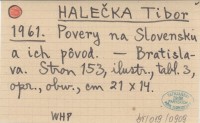 HALEČKA Tibor
1961. Povery na Slovensku
a ich pôvod. — Bratisla-
va. Stron 153, ilustr., tabl. 3,
opr., obw., cm 21 x 14.
WHP